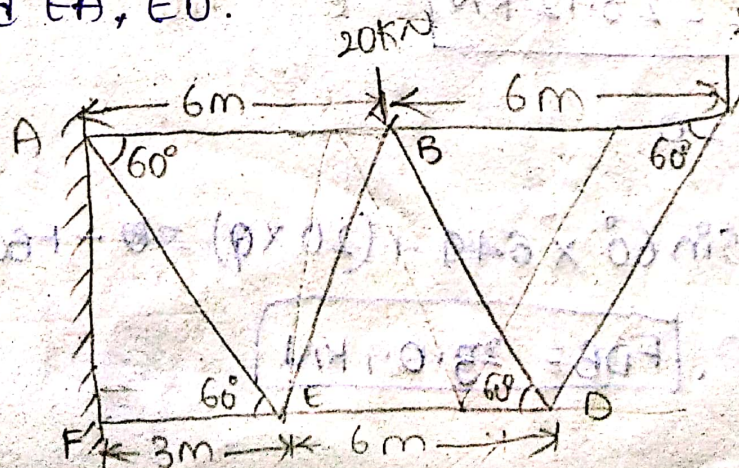 EA, ED.
20KN
6m 6m
A B
60° 60°
60° E 60° D
F 3m 6m